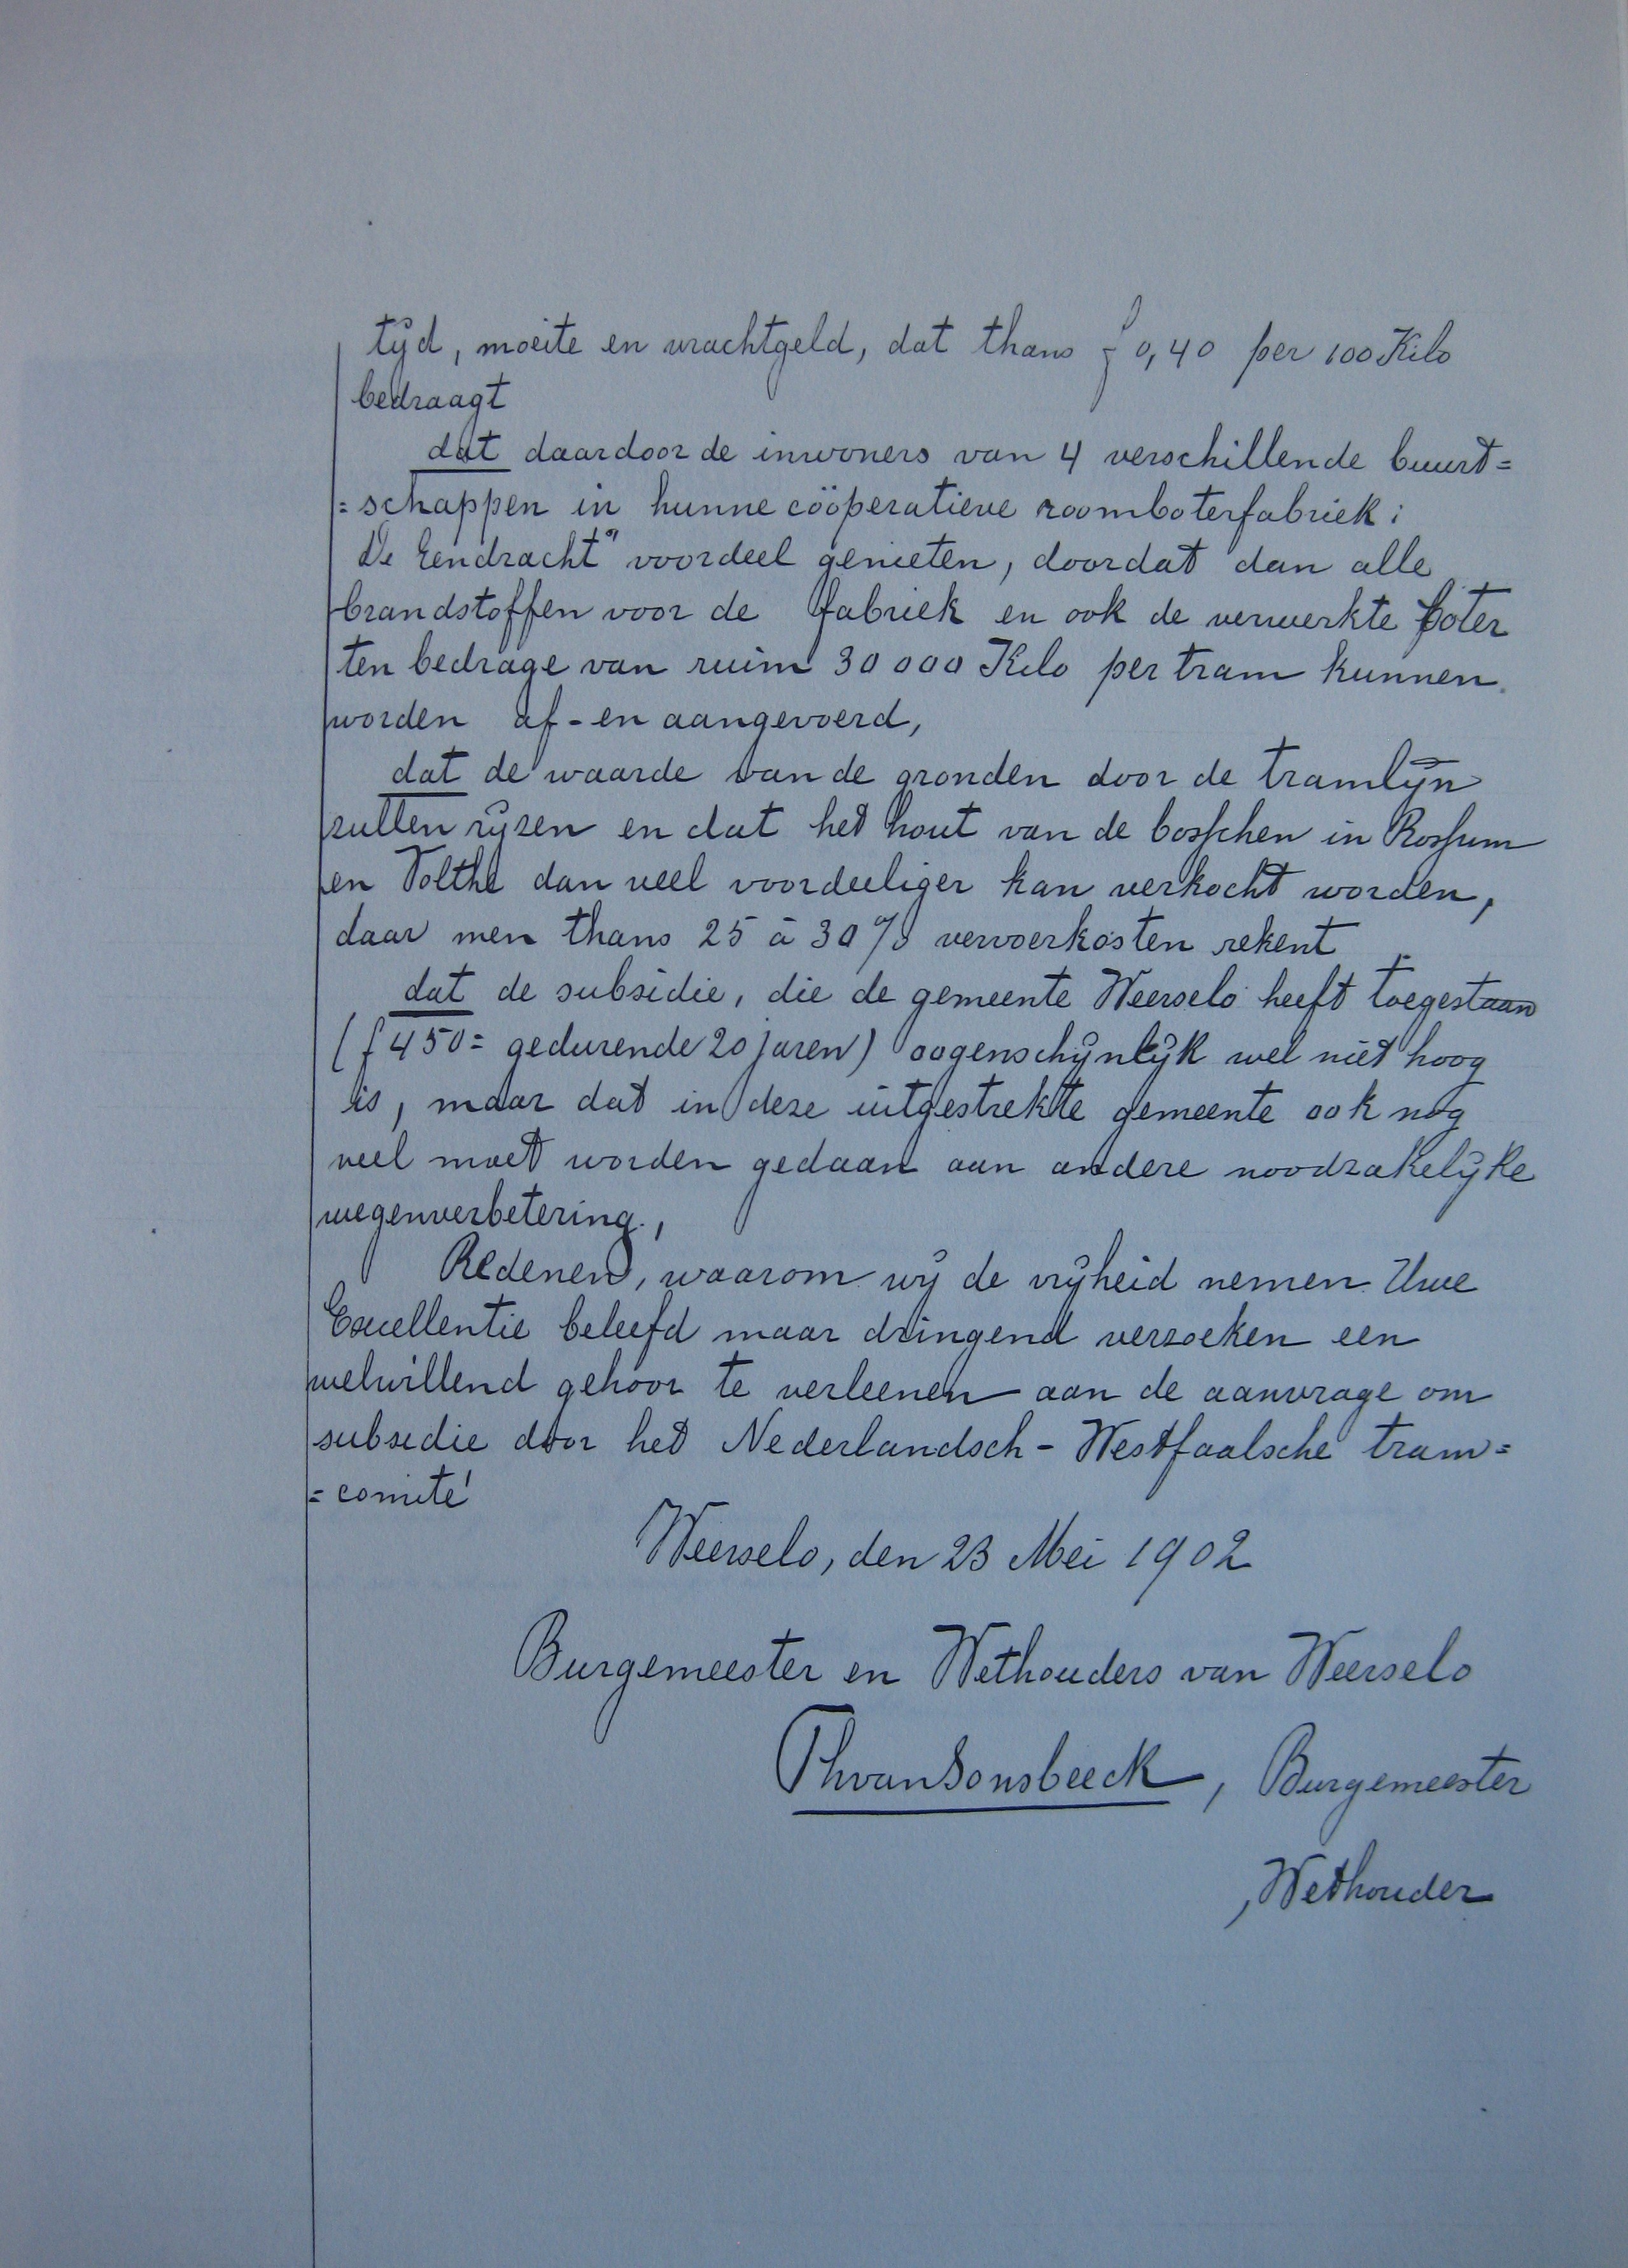 tijd, moeite en vrachtgeld, dat thans f 0,40 per 100 Kilo
bedraagt
dat daardoor de inwoners van 4 verschillende buurt=
=schappen in hunne cöòperatieve roomboterfabriek:
De Eendracht" voordeel genieten, doordat dan alle
brandstoffen voor de fabriek en ook de verwerkte boter
ten bedrage van ruim 30 000 Kilo per tram kunnen
worden af-en aangevoerd,
dat de waarde van de gronden door de tramlijn
zullen rijzen en dat het hout van de bosschen in Rossum
en Volthe dan veel voordeeliger kan verkocht worden,
daar men thans 25 à 30% vervoerkosten rekent
dat de subsidie, die de gemeente Weerselo heeft toegestaan
(f 450= gedurende 20 jaren) oogenschijnlijk wel niet hoog
is, maar dat in deze uitgestrekte gemeente ook nog
veel moet worden gedaan aan andere noodzakelijke
wegenverbetering.,
Redenen, waarom wij de vrijheid nemen Uwe
Excellentie beleefd maar dringend verzoeken een
welwillend gehoor te verleenen aan de aanvrage om
subsidie door het Nederlandsch-Westfaalsche tram=
=comité
Weerselo, den 23 Mei 1902
Burgemeester en Wethouders van Weerselo
Thvan Sonsbeeck, Burgemeester
, Wethouder